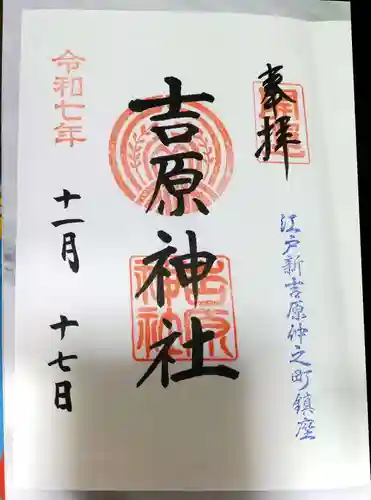 奉拝
開運
江戸新吉原仲之町鎮座
吉原神社
吉原神社
令和七年
十一月 十七日